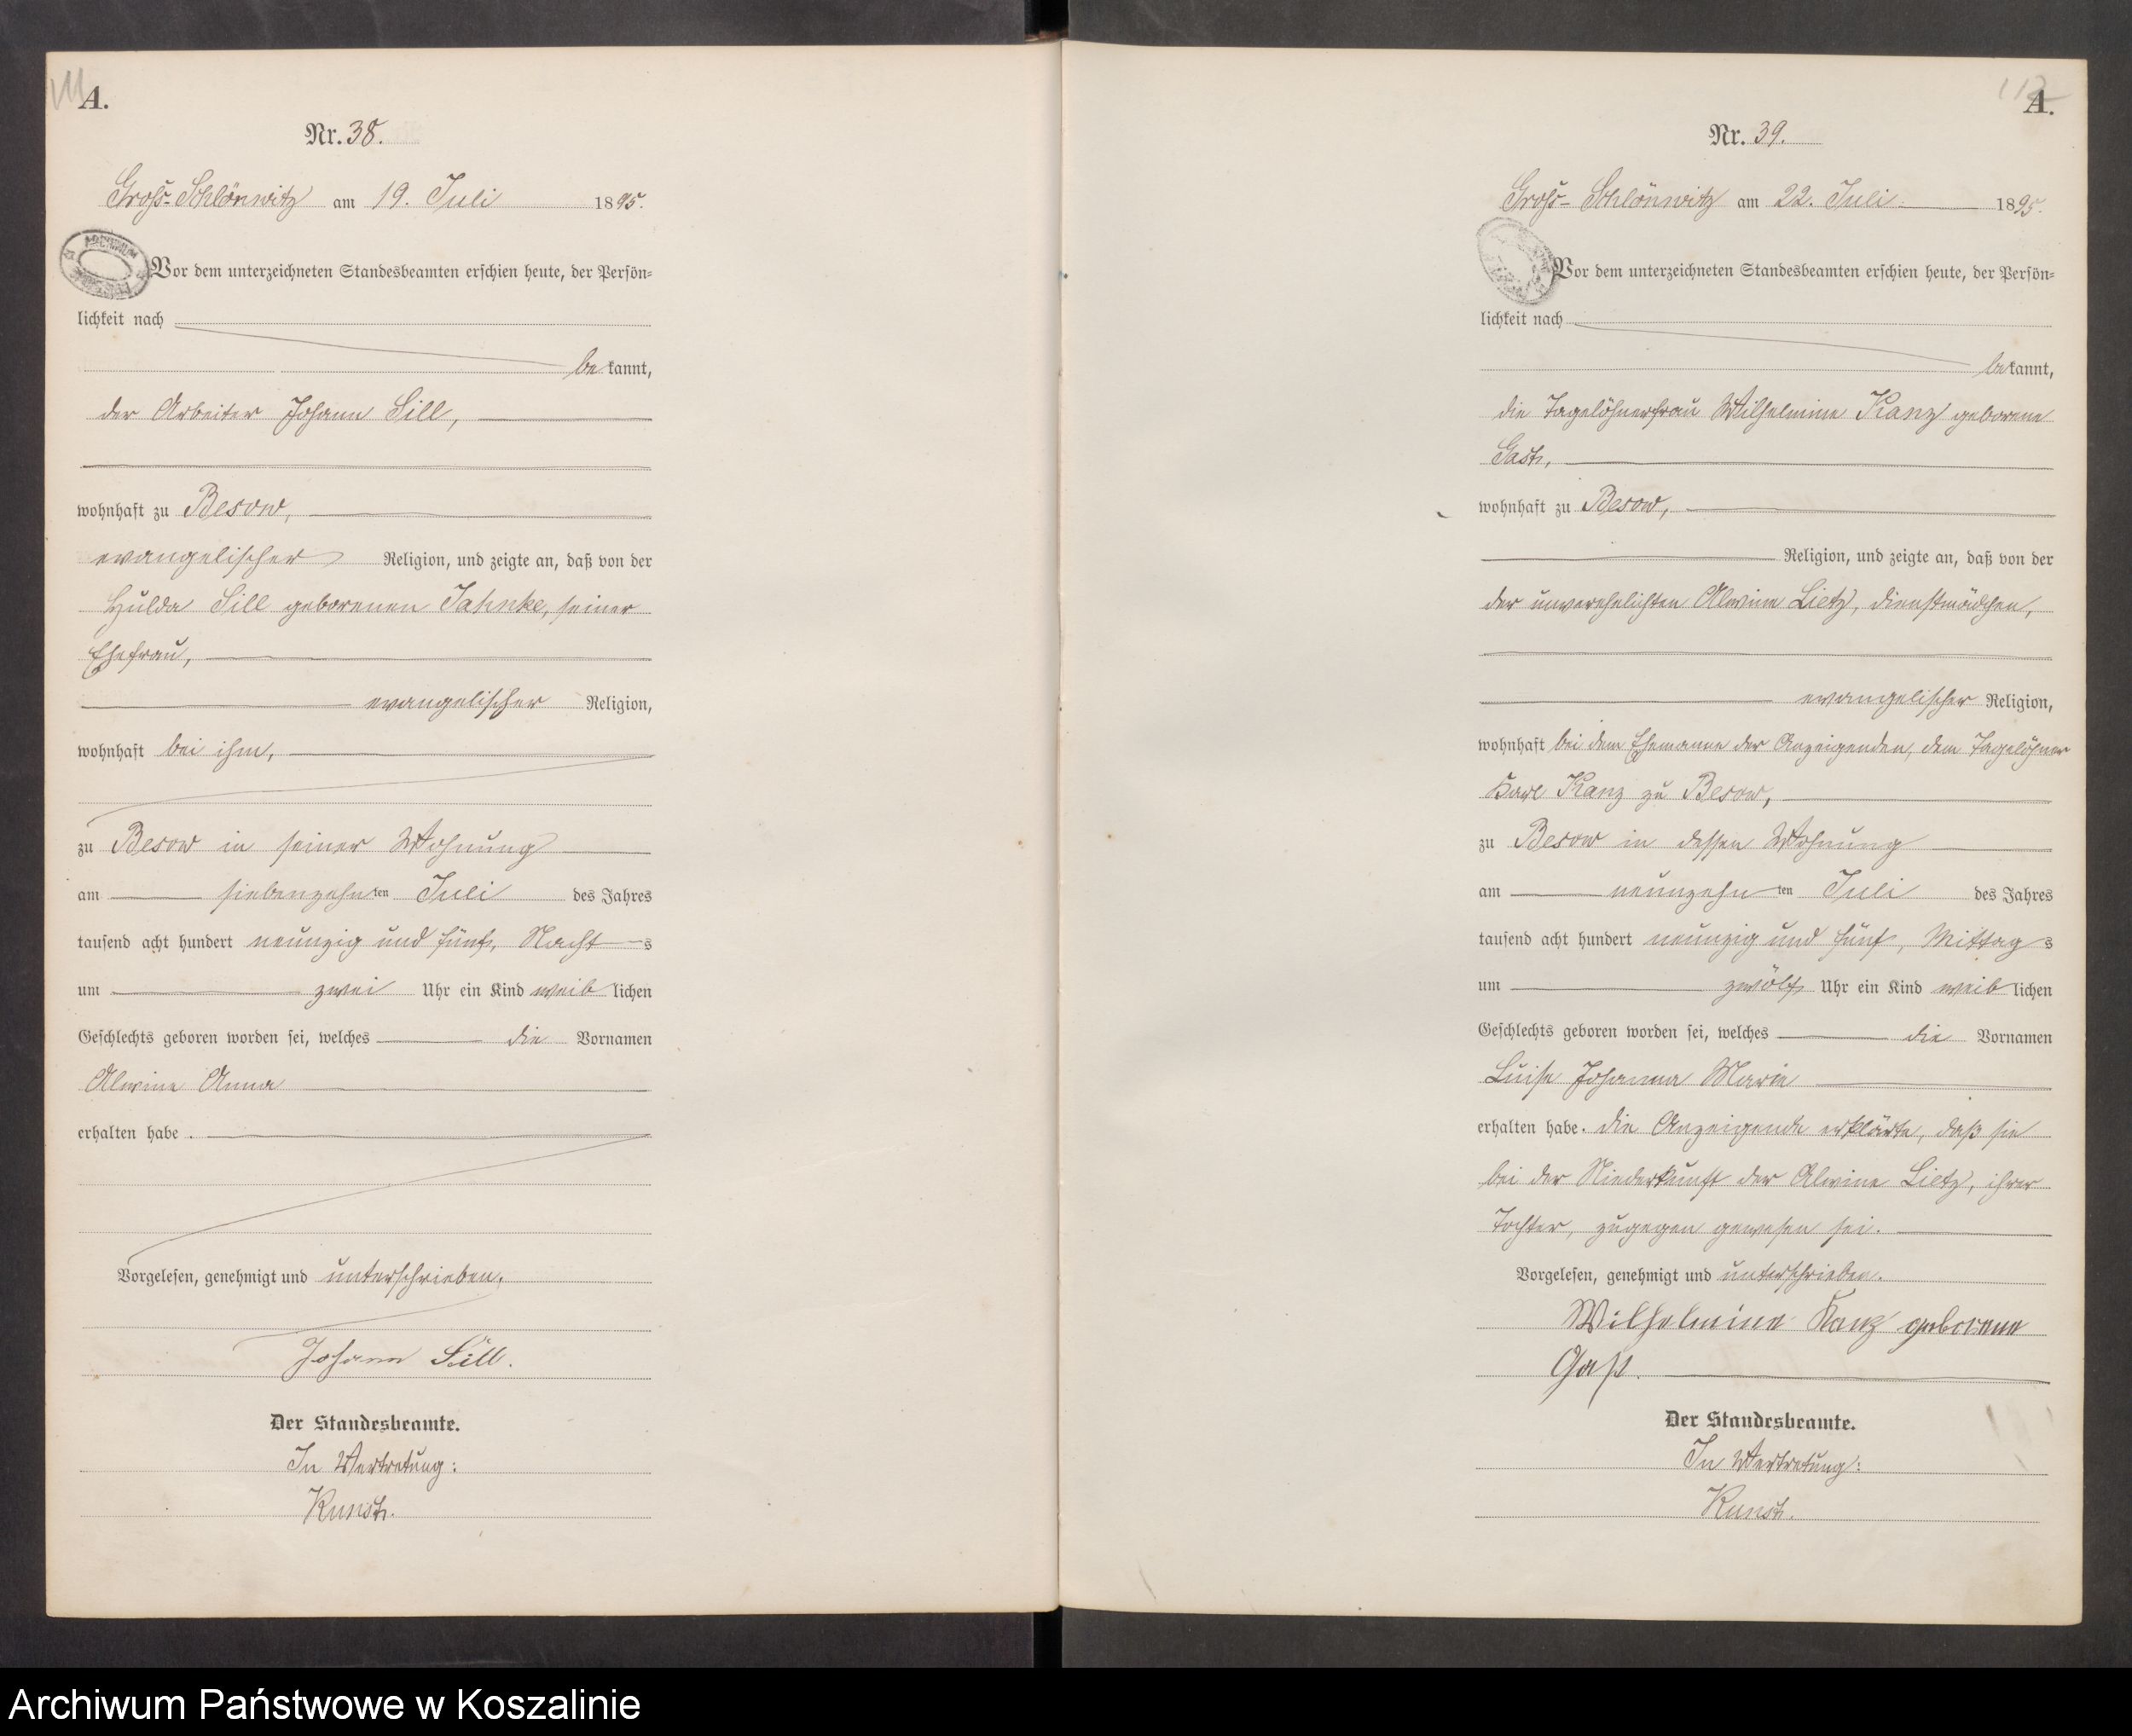 111
A.
Nr. 38.
Groß-Schlönwitz am 19. Juli 1895.
ARCHIWUM
Vor dem unterzeichneten Standesbeamten erschien heute, der Persön=
lichkeit nach
bekannt,
der Arbeiter Johann Sill,
wohnhaft zu Besow,
evangelischer Religion, und zeigte an, daß von der
Hulda Sill geborenen Jahnke, seiner
Ehefrau,
evangelischer Religion,
wohnhaft bei ihm,
zu Besow in seiner Wohnung
am siebenzehnten Juli des Jahres
tausend acht hundert neunzig und fünf, Nachts
um zwei Uhr ein Kind weiblichen
Geschlechts geboren worden sei, welches die Vornamen
Alwine Anna
erhalten habe.
Vorgelesen, genehmigt und unterschrieben.
Johann Sill.
Der Standesbeamte.
In Vertretung:
Kunst.
112
A.
Nr. 39.
Groß-Schlönwitz am 22. Juli 1895.
Vor dem unterzeichneten Standesbeamten erschien heute, der Persön=
lichkeit nach
bekannt,
die Tagelöhnerfrau Wilhelmine Kanz geborene
Gast,
wohnhaft zu Besow,
Religion, und zeigte an, daß von der
der unverehelichten Alwine Lietz, Dienstmädchen,
evangelischer Religion,
wohnhaft bei dem Ehemanne der Anzeigenden, dem Tagelöhner
Karl Kanz zu Besow,
zu Besow in dessen Wohnung
am neunzehnten Juli des Jahres
tausend acht hundert neunzig und fünf, Mittags
um zwölf Uhr ein Kind weiblichen
Geschlechts geboren worden sei, welches die Vornamen
Luise Johanna Marie
erhalten habe. Die Anzeigende erklärte, daß sie
bei der Niederkunft der Alwine Lietz, ihrer
Tochter, zugegen gewesen sei.
Vorgelesen, genehmigt und unterschrieben.
Wilhelmine Kanz geborene
Gast.
Der Standesbeamte.
In Vertretung:
Kunst.
Archiwum Państwowe w Koszalinie